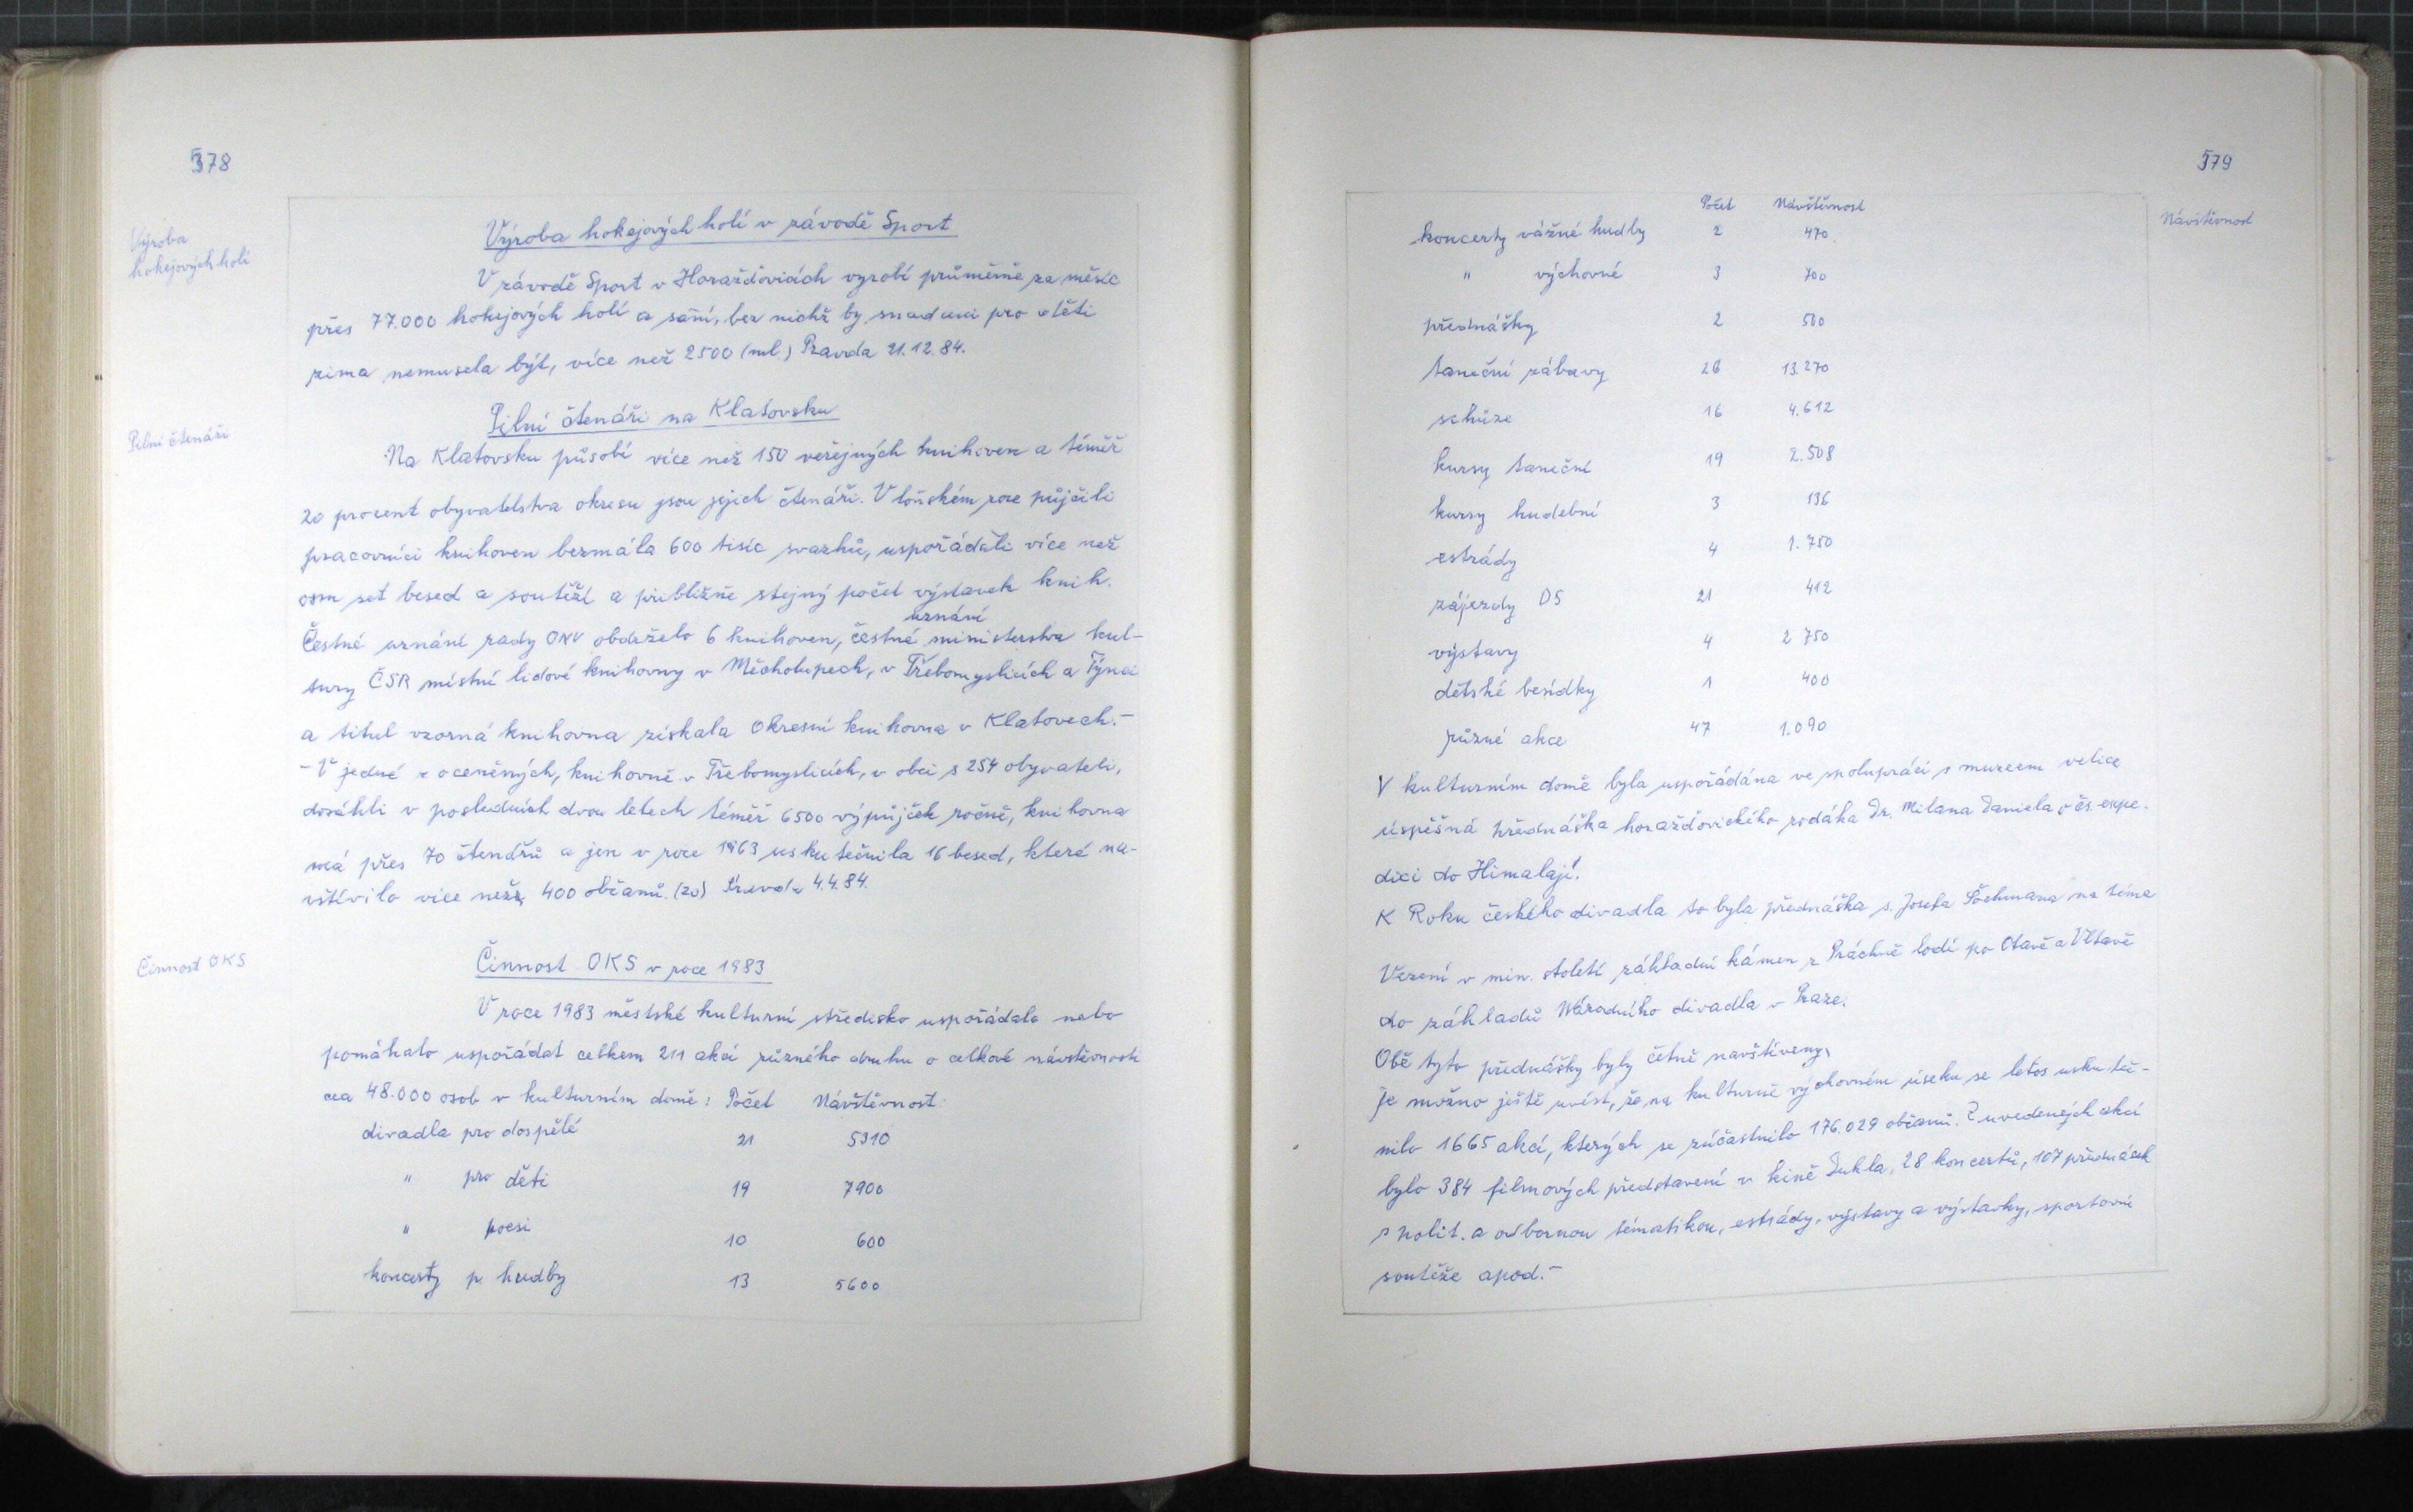 578
Výroba
hokejových holí
Výroba hokejových holí v závodě Sport
V závodě Sport v Horažďovicích vyrobí průměrně za měsíc
přes 77.000 hokejových holí a sání, bez nichž by snad ani pro děti
zima nemusela být, více než 2500 (ml) Pravda 21.12.84.
Pilní čtenáři
Pilní čtenáři na Klatovsku
Na Klatovsku působí více než 150 veřejných knihoven a téměř
20 procent obyvatelstva okresu jsou jejich čtenáři. V loňském roce půjčili
pracovníci knihoven bezmála 600 tisíc svazků, uspořádali více než
osm set besed a soutěží a přibližně stejný počet výstavek knih.
uznání
Čestné uznání rady ONV obdrželo 6 knihoven, čestné ministerstva kul-
tury ČSR místní lidové knihovny v Měcholupech, v Třebomyslicích a Týnci
a titul vzorná knihovna získala Okresní knihovna v Klatovech.-
- V jedné z oceněných, knihovně v Třebomyslicích, v obci s 254 obyvateli,
dosáhli v posledních dvou letech téměř 6500 výpůjček ročně, knihovna
má přes 70 čtenářů a jen v roce 1963 uskutečnila 16 besed, které na-
vštívilo více než 400 občanů. (zo) Pravda 4.4.84.
Činnost OKS
Činnost OKS v roce 1983
V roce 1983 městské kulturní středisko uspořádalo nebo
pomáhalo uspořádat celkem 211 akcí různého druhu o celkové návštěvnosti
cca 48.000 osob v kulturním domě: Počet Návštěvnost
divadla pro dospělé 21 5310
" pro děti 19 7900
" poesi 10 600
koncerty p. hudby 13 5600
579
Návštěvnost
Počet Návštěvnost
koncerty vážné hudby 2 470
" výchovné 3 700
přednášky 2 500
taneční zábavy 26 13.270
schůze 16 4.612
kursy taneční 19 2.508
kursy hudební 3 136
estrády 4 1.750
zájezdy DS 21 412
výstavy 4 2 750
dětské besídky 1 400
různé akce 47 1.090
V kulturním domě byla uspořádána ve spolupráci s muzeem velice
úspěšná přednáška horažďovického rodáka Dr. Milana Daniela o čs. expe-
dici do Himaláji!
K Roku českého divadla to byla přednáška s. Josefa na téma
Vezení v min. století základní kámen z Práchně lodí po Otavě a Vltavě
do základů Národního divadla v Praze.
Obě tyto přednášky byly četně navštíveny.
Je možno ještě uvést, že na kulturně výchovném úseku se letos uskuteč-
nilo 1665 akcí, kterých se zúčastnilo 176.029 občanů. Z uvedených akcí
bylo 384 filmových představení v kině Dukla, 28 koncertů, 107 přednášek
s polit. a odbornou tématikou, estrády, výstavy a výstavky, sportovní
soutěže apod.-